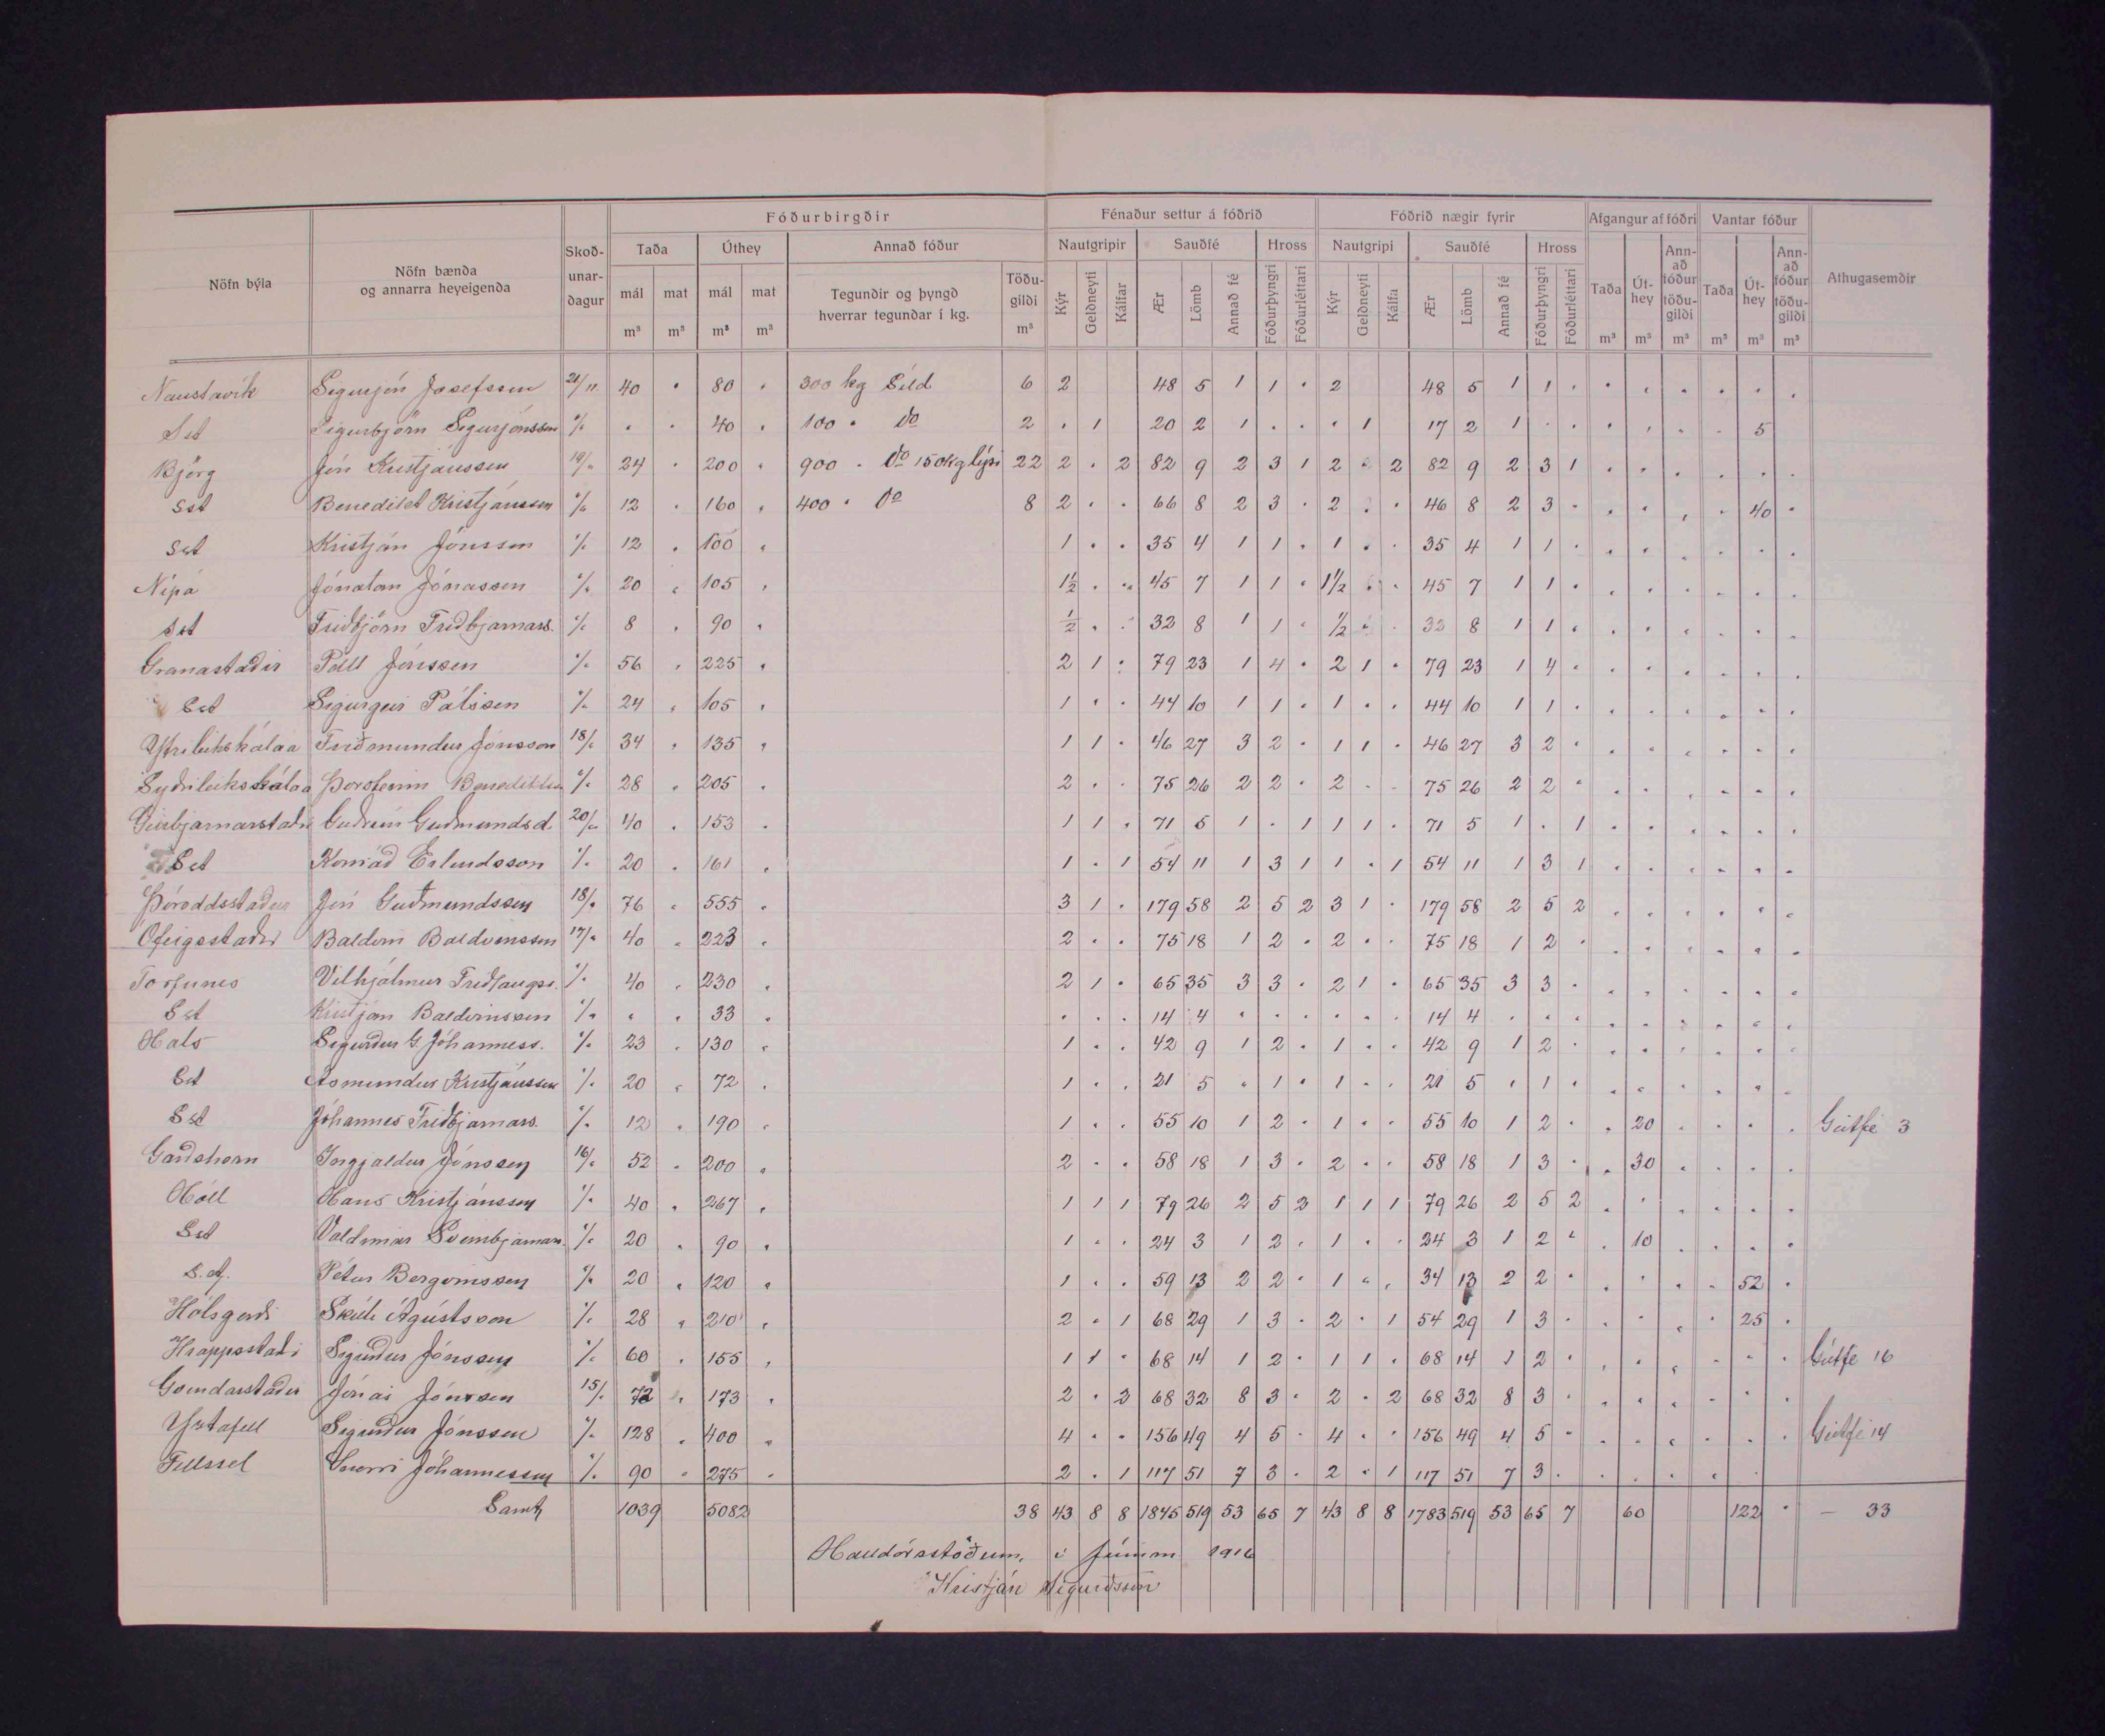 Fóðurbirgðir Fénaður settur á fóðrið Fóðrið nægir fyrir Afgangur af fóðri Vantar fóður
Nöfn býla Nöfn bænda og annarra heyeigenda Skoð-unar-dagur Taða Úthey Annað fóður Nautgripir Sauðfé Hross Nautgripi Sauðfé Hross Taða Út-hey Ann-að fóður töðu-gildi Taða Út-hey Ann-að fóður töðu-gildi Athugasemdir
mál mat mál mat Tegundir og þyngd hverrar tegundar í kg. Töðu-gildi Kýr Geldneyti Kálfar Ær Lömb Annað fé Fóðurþyngri Fóðurléttari Kýr Geldneyti Kálfa Ær Lömb Annað fé Fóðurþyngri Fóðurléttari
m³ m³ m³ m³ m³ m³ m³ m³ m³ m³ m³
Naustavík Sigurjón Josefsson 21/11 40 " 80 " 300 kg Síld 6 2 48 5 1 1 " 2 48 5 1 1 " " " " " " "
Set Sigurbjörn Sigurjónsson "/" " " 40 " 100 " do 2 " 1 20 2 1 " " " 1 17 2 1 " " " " " " 5
Björg Jón Kristjánsson 19/" 24 " 200 " 900 " do 150 kg lýsi 22 2 " 2 82 9 2 3 1 2 " 2 82 9 2 3 1 " " " " " "
Set Benedikt Kristjánsson "/" 12 " 160 " 400 " do 8 2 " " 66 8 2 3 " 2 " " 46 8 2 3 " " " " " 40 "
Set Kristján Jónsson "/" 12 " 100 " 1 " " 35 4 1 1 " 1 " " 35 4 1 1 " " " " " " "
Nípá Jónatan Jónasson "/" 20 " 105 " 1½ " " 45 7 1 1 " 1½ " " 45 7 1 1 " " " " " " "
Set Friðbjörn Friðbjarnars. "/" 8 " 90 " ½ " " 32 8 1 1 " ½ " " 32 8 1 1 " " " " " " "
Granastaðir Páll Jónsson "/" 56 " 225 " 2 1 " 79 23 1 4 " 2 1 " 79 23 1 4 " " " " " " "
Set Sigurgeir Pálsson "/" 24 " 105 " 1 " " 44 10 1 1 " 1 " " 44 10 1 1 " " " " " " "
Ytrileikskálaa Friðmundur Jónsson 18/" 34 " 135 " 1 1 " 46 27 3 2 " 1 1 " 46 27 3 2 " " " " " " "
Syðrileikskálaa Þorsteinn Benediktss "/" 28 " 205 " 2 " " 75 26 2 2 " 2 " " 75 26 2 2 " " " " " " "
Geirbjarnarstaðir Guðrún Guðmundsd. 20/" 40 " 153 " 1 1 " 71 5 1 " 1 1 1 " 71 5 1 " 1 " " " " " "
Set Konráð Erlendsson "/" 20 " 161 " 1 " 1 54 11 1 3 1 1 " 1 54 11 1 3 1 " " " " " "
Þóroddsstaður Jón Guðmundsson 18/" 76 " 555 " 3 1 " 179 58 2 5 2 3 1 " 179 58 2 5 2 " " " " " "
Ofeigsstaðir Baldvin Baldvinsson 17/" 40 " 223 " 2 " " 75 18 1 2 " 2 " " 75 18 1 2 " " " " " " "
Torfunes Vilhjálmur Friðlaugss. "/" 40 " 230 " 2 1 " 65 35 3 3 " 2 1 " 65 35 3 3 " " " " " " "
Set Kristján Baldvinsson "/" " " 33 " " " " 14 4 " " " " " " 14 4 " " " " " " " " "
Hals Sigurður G. Jóhanness. "/" 23 " 130 " 1 " " 42 9 1 2 " 1 " " 42 9 1 2 " " " " " " "
Set Ásmundur Kristjánsson "/" 20 " 72 " 1 " " 21 5 " 1 " 1 " " 21 5 " 1 " " " " " " "
Set Jóhannes Friðbjarnars. "/" 12 " 190 " 1 " " 55 10 1 2 " 1 " " 55 10 1 2 " " 20 " " " " Geitfé 3
Garðshorn Ingjaldur Jónsson 16/" 52 " 200 " 2 " " 58 18 1 3 " 2 " " 58 18 1 3 " " 30 " " " "
Hóll Hans Kristjánsson "/" 40 " 267 " 1 1 1 79 26 2 5 2 1 1 1 79 26 2 5 2 " " " " " "
Set Valdimar Sveinbjarnar. "/" 20 " 90 " 1 " " 24 3 1 2 " 1 " " 24 3 1 2 " " 10 " " " "
S. st. Pétur Bergvinsson "/" 20 " 120 " 1 " " 59 13 2 2 " 1 " " 34 13 2 2 " " " " " 52 "
Hólsgerði Skúli Ágústsson "/" 28 " 210 " 2 " 1 68 29 1 3 " 2 " 1 54 29 1 3 " " " " " 25 "
Hrappsstaði Sigurður Jónsson "/" 60 " 155 " 1 1 " 68 14 1 2 " 1 1 " 68 14 1 2 " " " " " " " Geitfe 16
Goendarstaðir Jónas Jónsson 15/" 72 " 173 " 2 " 2 68 32 8 3 " 2 " 2 68 32 8 3 " " " " " " "
Yztafell Sigurður Jónsson "/" 128 " 400 " 4 " " 156 49 4 5 " 4 " " 156 49 4 5 " " " " " " " Geitfé 14
Fellssel Snorri Jóhannesson "/" 90 " 275 " 2 " 1 117 51 7 3 " 2 " 1 117 51 7 3 " " " " " "
Samtz 1039 5082 38 43 8 8 1845 519 53 65 7 43 8 8 1783 519 53 65 7 60 122 " — 33
Halldórsstöðum, í Júním 1916
Kristján Sigurðsson